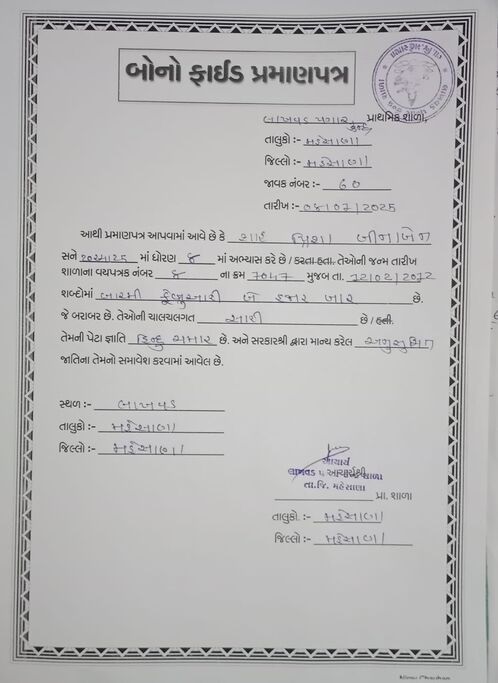 બોનો ફાઈડ પ્રમાણપત્ર
લાખવડ પગાર કેન્દ્ર પ્રાથમિક શાળા,
તાલુકો :- મહેસાણા
જિલ્લો :- મહેસાણા
જાવક નંબર :- ૬૦
તારીખ :- ૦૪/૦૭/૨૦૨૫
આથી પ્રમાણપત્ર આપવામાં આવે છે કે શાહ
સને ૨૦૨૪/૨૫ માં ધોરણ ૮ માં અભ્યાસ કરે છે / કરતા હતા. તેઓની જન્મ તારીખ
શાળાના વયપત્રક નંબર ૮ ના ક્રમ ૧૦૪૭ મુજબ તા. ૧૨/૦૨/૨૦૧૨
શબ્દોમાં બારમી ફેબ્રુઆરી બે હજાર બાર છે.
જે બરાબર છે. તેઓની ચાલચલગત સારી છે / હતી.
તેમની પેટા જ્ઞાતિ હિન્દુ ચમાર છે. અને સરકારશ્રી દ્વારા માન્ય કરેલ અનુસુચિત
જાતિના તેમનો સમાવેશ કરવામાં આવેલ છે.
સ્થળ :- લાખવડ
તાલુકો :- મહેસાણા
જિલ્લો :- મહેસાણા
આચાર્ય
આચાર્યશ્રી
તા.જિ. મહેસાણા
પ્રા. શાળા
તાલુકો :- મહેસાણા
જિલ્લો :- મહેસાણા